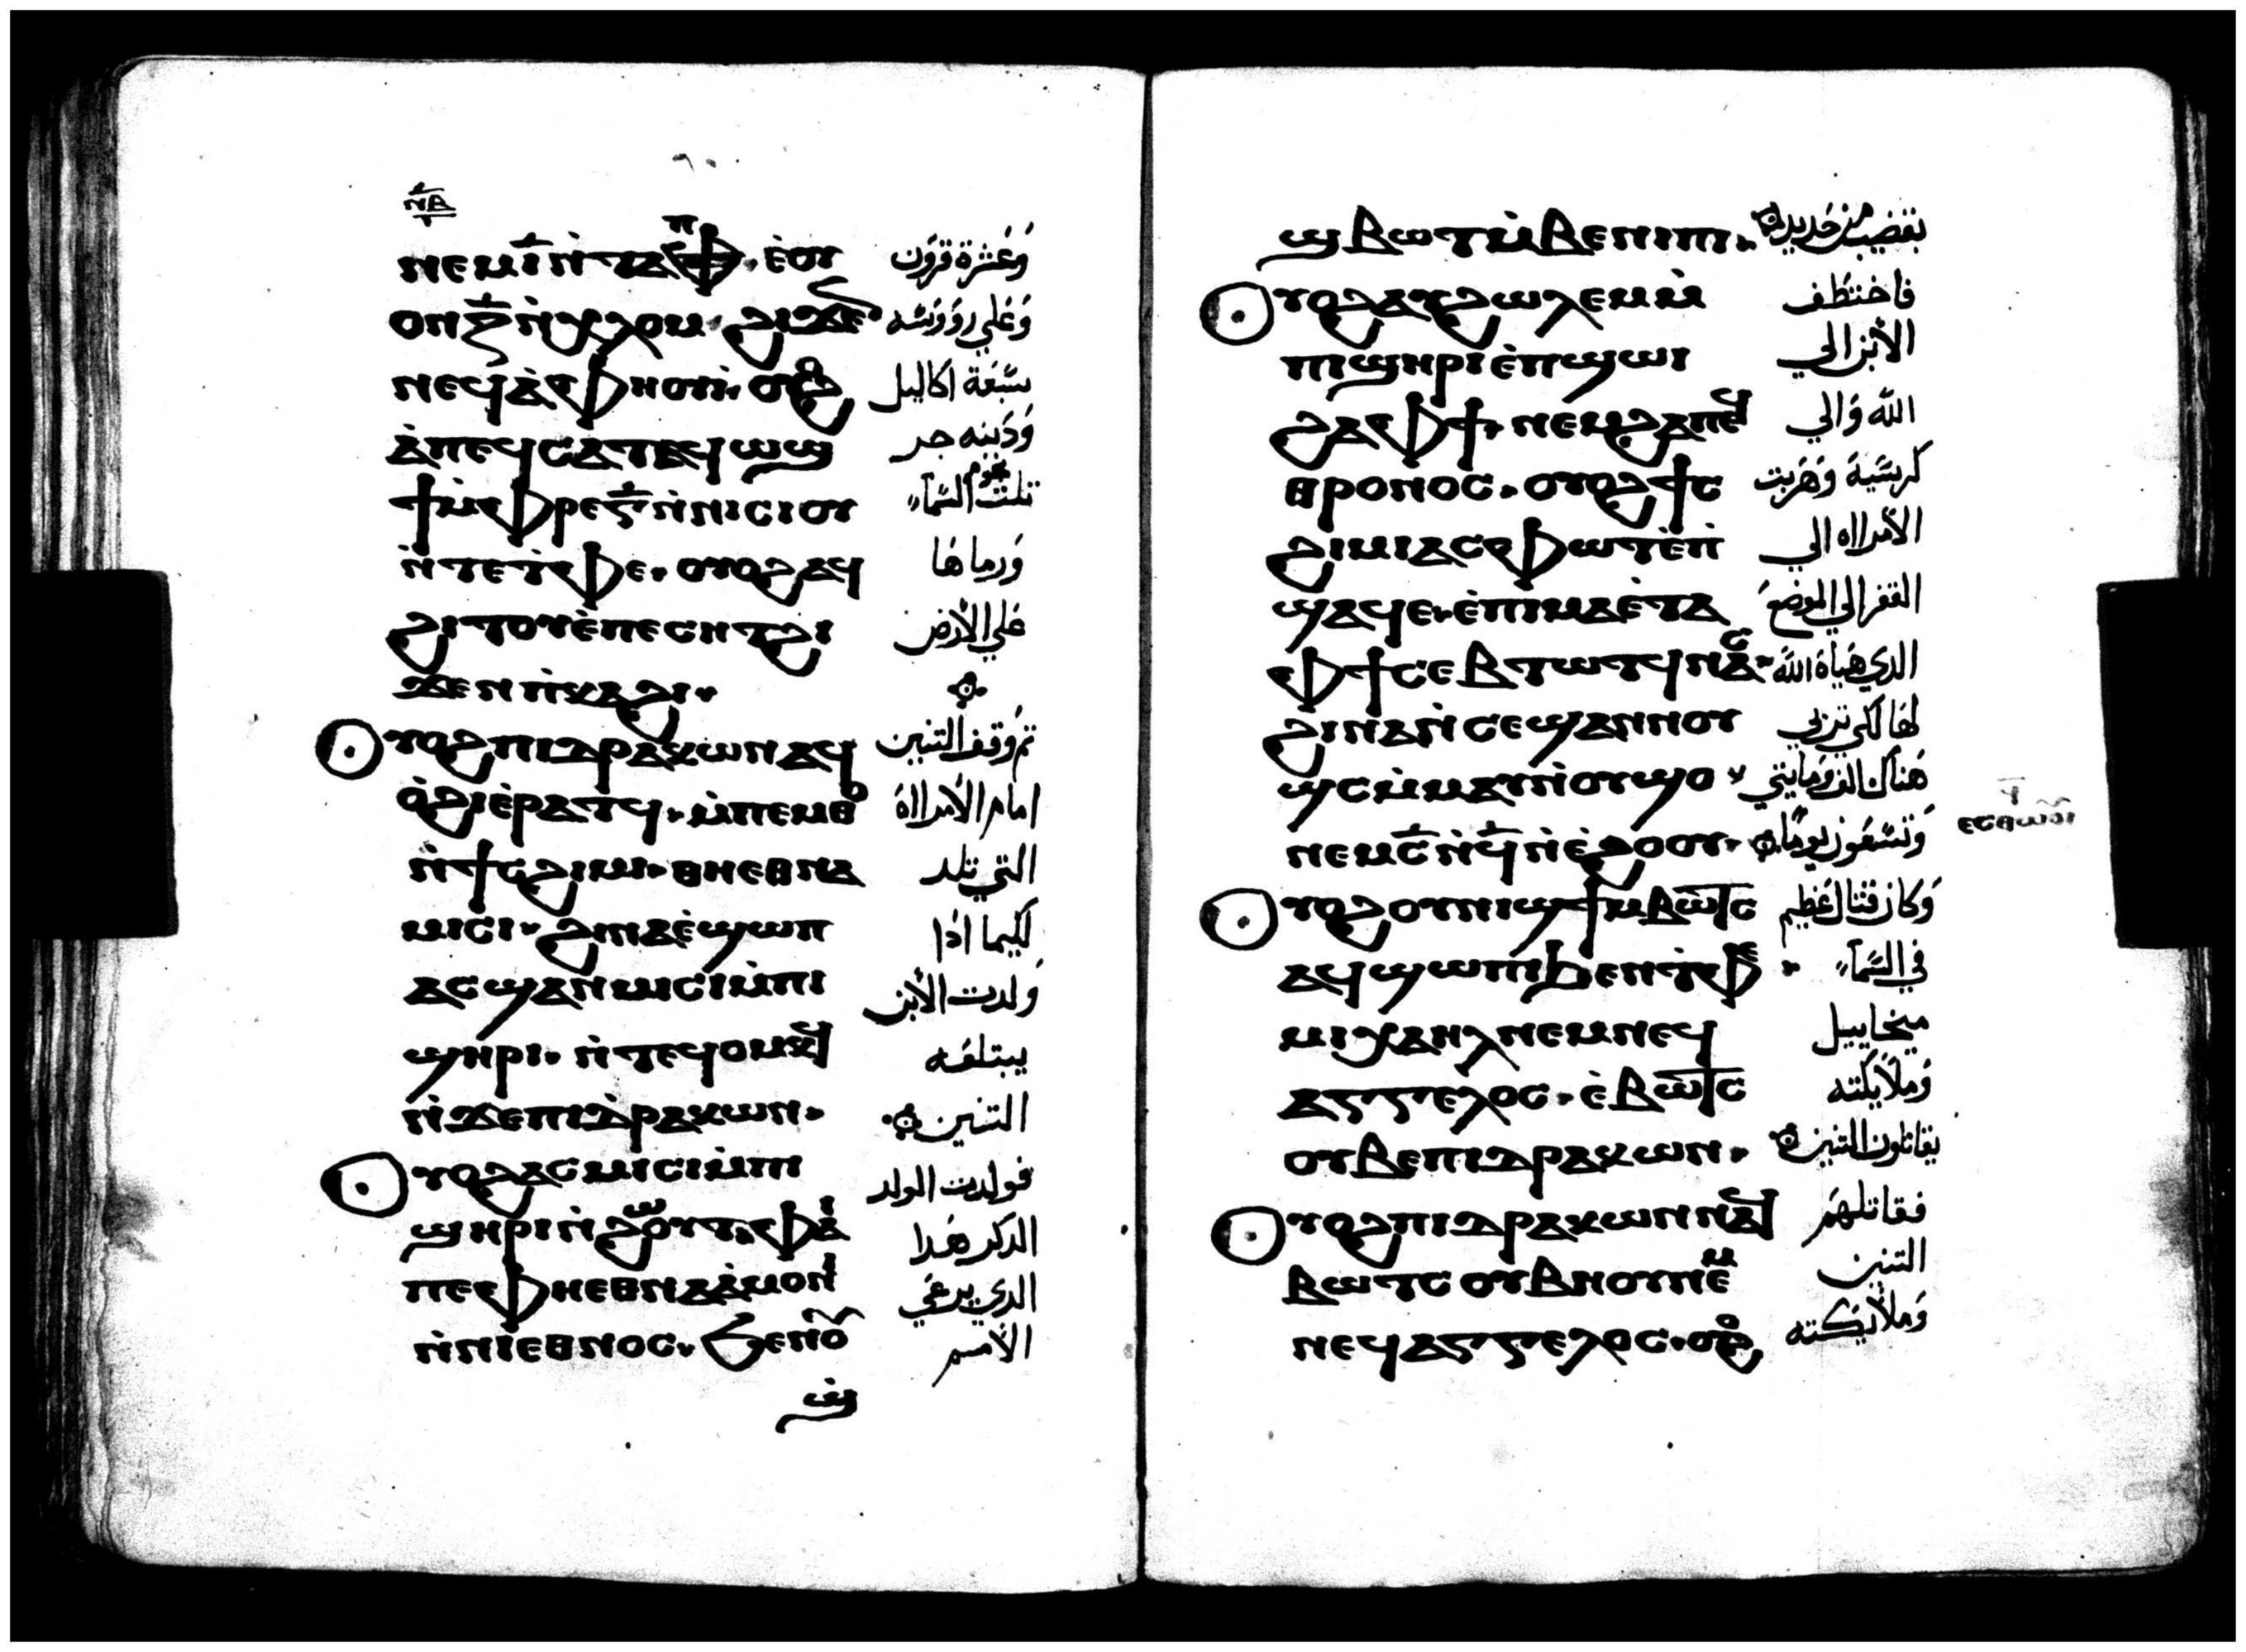 ⲛⲃ
ⲛⲉⲙⲓ̅ⲛ̀ⲧⲁⲡ· ⲉ̀ⲟⲩ وَعَشرة قرَون
ⲟⲛⲍ̅ⲛ̀ⲭⲗⲟⲙ· ϩⲓϫⲉ وَعَلي روَوَسَه
ⲛⲉϥⲁ̀ⲫⲏⲟⲩⲓ̀· ⲟⲩⲟϩ سَبعَة اكاليل
ⲁ̀ⲡⲉϥⲥⲁⲧ ϥⲱϣ وَدَنبه جر
ϯⲙ̀ⲫⲣⲉⲅ̅ⲛ̀ⲛⲓⲥⲓⲟⲩ تلت نجوم السَمآء
ⲛ̀ⲧⲉⲧ̀ⲫⲉ· ⲟⲩⲟϩⲁϥ وَرماهَا
ϩⲓⲧⲟⲩⲉ̀ⲡⲉⲥⲏⲧϩⲓ عَلي الأرض
ϫⲉⲛⲡ̀ⲕⲁϩⲓ·
ⲟⲩⲟϩⲡⲓⲇⲣⲁⲕⲱⲛⲁϥ تم وَقف التنين
ⲟ̀ϩⲓⲉ̀ⲣⲁⲧϥ· ⲙ̀ⲡⲉⲙⲑⲟ امام الأمرااه
ⲛ̀ϯⲥϩⲓⲙⲓ· ⲑⲏⲉⲑⲛⲁ التي تلد
ⲙⲓⲥⲓ· ϩⲓⲛⲁⲉ̀ϣⲱⲡ لكيما ادا
ⲁⲥϣⲁⲛⲙⲓⲥⲓⲙ̀ⲡⲓ وَلدت الأبن
ϣⲏⲣⲓ· ⲛ̀ⲧⲉϥⲟⲙⲕϥ يبتلعَه
ⲛ̀ϫⲉⲡⲓⲇ̀ⲣⲁⲕⲱⲛ· التنين
ⲟⲩⲟϩⲁⲥⲙⲓⲥⲓⲙ̀ⲡⲓ فولدت الولد
ϣⲏⲣⲓⲛ̀ϩⲱⲟⲩⲧ· ⲫⲁⲓ̀ الدكر هَدا
ⲡⲉⲫⲏⲉⲑⲛⲁⲁ̀ⲙⲟⲛⲓ̀ الدي يرعَي
ⲛ̀ⲛⲓⲉⲑⲛⲟⲥ· ϧⲉⲛⲟ الأمم
ϣ̀
ϣⲃⲱⲧⲙ̀ⲃⲉⲛⲓⲡⲓ· بقضيب من حَديد
ⲟⲩⲟϩⲁⲩϩⲱⲗⲉⲙⲙ̀ فاختَطَف
ⲡⲓϣⲏⲣⲓⲉ̀ⲡϣⲱⲓ الأبن الي
ϩⲁⲫϯ· ⲛⲉⲙϩⲁⲡⲉϥ الله وَالي
ⲑⲣⲟⲛⲟⲥ· ⲟⲩⲟϩϯⲥ كرسَيهَ وَهَربت
ϩⲓⲙⲓⲁⲥⲫⲱⲧⲉ̀ⲡ̀ الأمرااه الي
ϣⲁϥⲉ· ⲉ̀ⲡⲓⲙⲁⲉ̀ⲧⲁ القفر الي الموضعَ
ⲫϯⲥⲉⲃⲧⲱⲧϥⲛⲁⲥ الدي هَياهَ اللهَ
ϩⲓⲛⲁⲛ̀ⲥⲉϣⲁⲛⲛⲟⲩ لهَا لكي تربي
ϣⲥⲙ̀ⲙⲁⲩⲛ̀ⲟⲩϣⲟ هَناك الف وَمايتي
ⲛⲉⲙⲥ̅ⲛ̀ϥ̅ⲛ̀ⲉ̀ϩⲟⲟⲩ· وَتسَعَون يومًا
ⲟⲩⲟϩⲟⲩⲛⲓϣϯⲙ̀ⲃⲱⲧⲥ وَكان قتال عَظيم
ⲁϥϣⲱⲡⲓϧⲉⲛⲧ̀ⲫⲉ في السَمآء
ⲙⲓⲭⲁⲏⲗⲛⲉⲙⲛⲉϥ ميخاييل
ⲁⲅⲅⲉⲗⲟⲥ· ⲉ̀ⲃⲱⲧⲥ وَملأيكته
ⲟⲩⲃⲉⲡⲓⲇⲣⲁⲕⲱⲛ· يقاتلون التنين
ⲟⲩⲟϩⲡⲓⲇⲣⲁⲕⲱⲛⲛⲁϥ فقاتلهَم
ⲃⲱⲧⲥⲟⲩⲃⲏⲟⲩⲡⲉⲙ التنين
ⲛⲉϥⲁⲅⲅⲉⲗⲟⲥ· ⲟⲩⲟϩ وَملأيكته